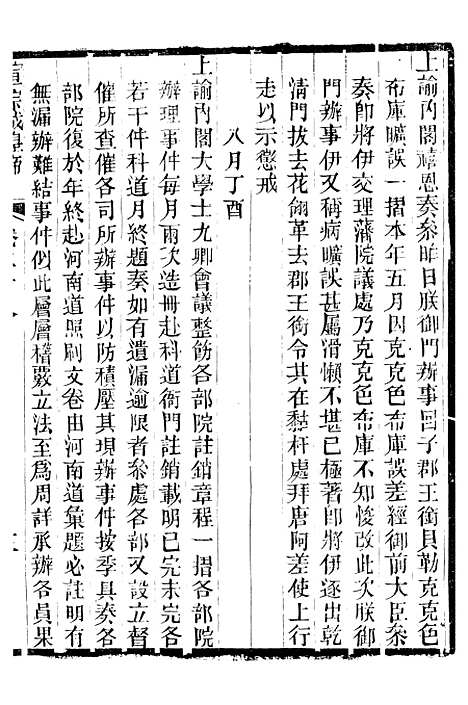 上諭內閣禧恩奏叅昨日朕御門辦事固子郡王銜貝勒克克色
布庫曠誤一摺本年五月因克克色布庫誤差經御前大臣叅
奏卽將伊交理藩院議處乃克克色布庫不知悛改此次朕御
門辦事伊又稱病曠誤甚屬滑懶不堪已極著卽將伊逐出乾
淸門拔去花翎革去郡王銜令其在黏杆處拜唐阿差使上行
走以示懲戒
八月丁酉
上諭內閣大學士九卿會議整飭各部院註銷章程一摺各部院
辦理事件每月兩次造冊赴科道衙門註銷載明已完未完各
若干件科道月終題奏如有遺漏逾限者叅處各部又設立督
催所查催各司所辦事件以防積壓其現辦事件按季具奏各
部院復於年終赴河南道照刷文卷由河南道彙題必註明有
無漏辦難結事件似此層層稽覈立法至爲周詳承辦各員果